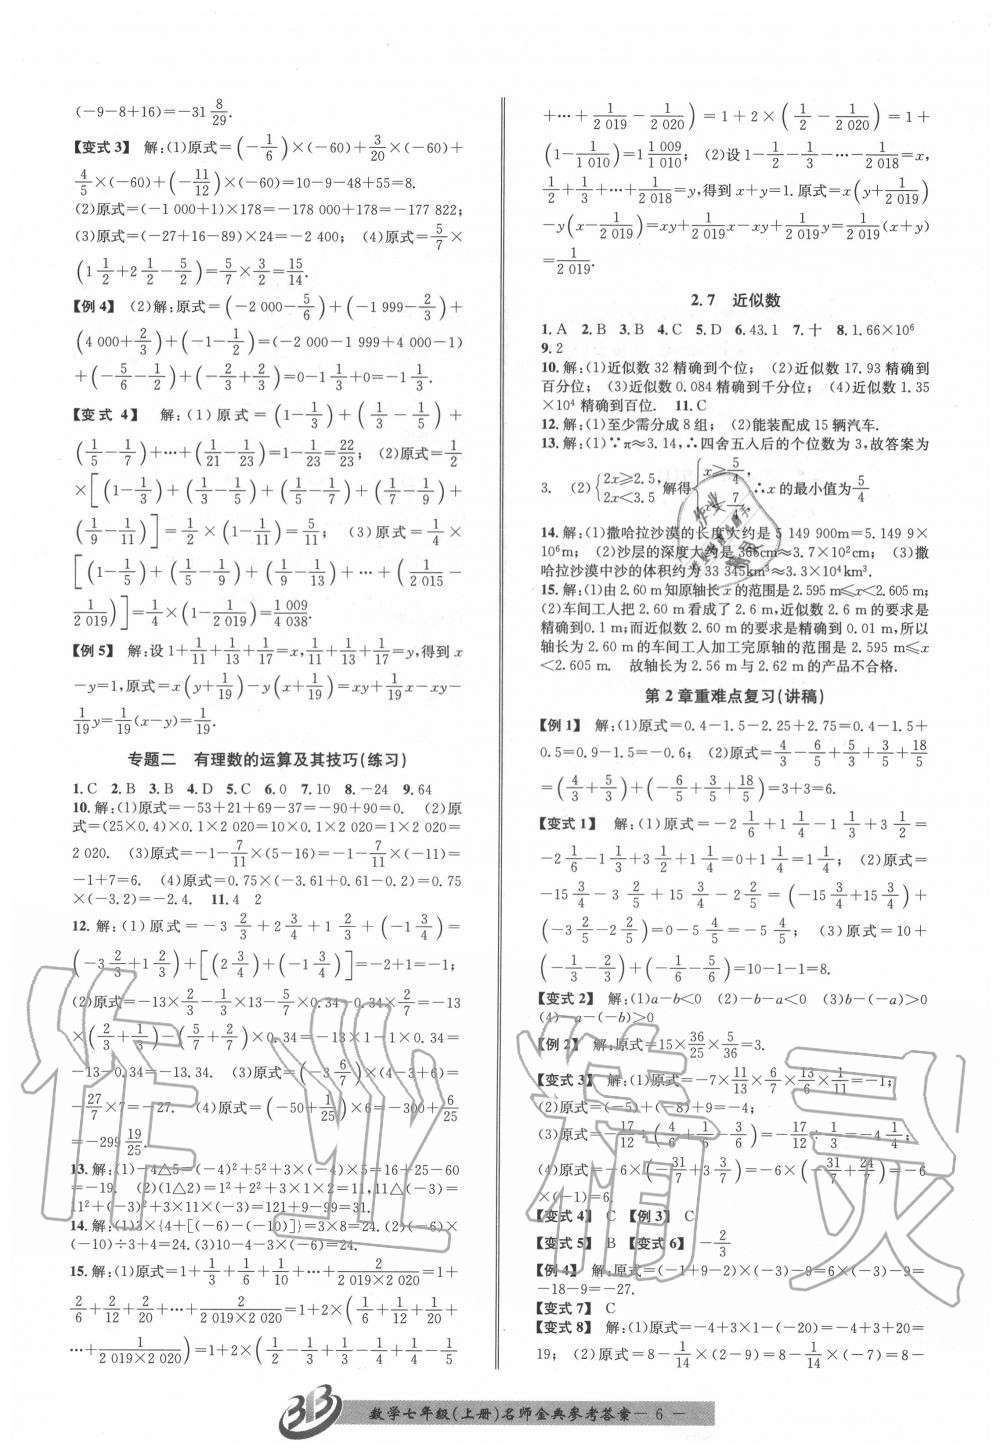 (-9-8+16)=-31 8/29.
【变式3】 解:(1)原式=(-1/6)×(-60)+3/20×(-60)+
4/5×(-60)+(-11/12)×(-60)=10-9-48+55=8.
(2)原式=(-1 000+1)×178=-178 000+178=-177 822;
(3)原式=(-27+16-89)×24=-2 400; (4)原式=5/7×
(1 1/2+2 1/2-5/2)=5/7×3/2=15/14.
【例4】 (2)解:原式=(-2 000-5/6)+(-1 999-2/3)+
(4 000+2/3)+(-1-1/2)=(-2 000-1 999+4 000-1)
+(-5/6-1/2)+(-2/3+2/3)=0-1 1/3+0=-1 1/3.
【变式4】 解:(1)原式=(1-1/3)+(1/3-1/5)+
(1/5-1/7)+…+(1/21-1/23)=1-1/23=22/23; (2)原式=1/2
×[(1-1/3)+(1/3-1/5)+(1/5-1/7)+(1/7-1/9)+
(1/9-1/11)]=1/2×(1-1/11)=5/11; (3)原式=1/4×
[(1-1/5)+(1/5-1/9)+(1/9-1/13)+…+(1/2 015-
1/2 019)]=1/4×(1-1/2 019)=1 009/4 038.
【例5】 解:设1+1/11+1/13+1/17=x,1/11+1/13+1/17=y,得到x
-y=1,原式=x(y+1/19)-y(x+1/19)=xy+1/19x-xy-
1/19y=1/19(x-y)=1/19.
专题二 有理数的运算及其技巧(练习)
1.C 2.B 3.B 4.D 5.C 6.0 7.10 8.-24 9.64
10.解:(1)原式=-53+21+69-37=-90+90=0. (2)原
式=(25×0.4)×0.1×2 020=10×0.1×2 020=1×2 020=
2 020. (3)原式=-1-7/11×(5-16)=-1-7/11×(-11)=
-1+7=6. (4)原式=0.75×(-3.61+0.61-0.2)=0.75
×(-3.2)=-2.4. 11.4 2
12.解:(1)原式=-3 2/3+2 3/4+1 2/3+(-1 3/4)=
(-3 2/3+1 2/3)+[2 3/4+(-1 3/4)]=-2+1=-1;
(2)原式=-13×2/3-1/3×13-5/7×0.34-0.34×2/7=-13
×(2/3+1/3)-(5/7+2/7)×0.34=-13×1-1×0.34=
-13-0.34=-13.34. (3)原式=(-3 6/7)×(4-3+6)=
-27/7×7=-27. (4)原式=(-50+1/25)×6=-300+6/25
=-299 19/25.
13.解:(1)-4△5=(-4)²+5²+3×(-4)×5=16+25-60
=-19. (2)(1△2)=1²+2²+3×1×2=11,11△(-3)=
11²+(-3)²+3×11×(-3)=121+9-99=31.
14.解:(1)3×{4+[(-6)-(-10)]}=3×8=24.(2)(-6)×
(-10)÷3+4=24.(3)10-4-3×(-6)=24.
15.解:(1)原式=1+1/3+1/6+1/10+…+2/2 019×2 020=1+
2/6+2/12+2/20+…+2/2 019×2 020=1+2×(1/6+1/12+1/20+
…+1/2 019×2 020)=1+2×(1/2-1/3+1/3-1/4+1/4-1/5
+…+1/2 019-1/2 020)=1+2×(1/2-1/2 020)=1+
(1-1/1 010)=1 1 009/1 010; (2)设1-1/2-1/3-…-1/2 018=x,
1/2+1/3+…+1/2 018=y,得到x+y=1.原式=x(y+1/2 019)
-y(x-1/2 019)=xy+1/2 019x-xy+1/2 019y=1/2 019(x+y)
=1/2 019.
2.7 近似数
1.A 2.B 3.B 4.C 5.D 6.43.1 7.十 8.1.66×10⁶
9.2
10.解:(1)近似数32精确到个位; (2)近似数17.93精确到
百分位; (3)近似数0.084精确到千分位; (4)近似数1.35
×10⁴精确到百位. 11.C
12.解:(1)至少需分成8组; (2)能装配成15辆汽车.
13.解:(1)∵π≈3.14,∴四舍五入后的个位数为3,故答案为
3. (2){2x≥2.5, 2x<3.5 解得{x≥5/4, 7/4 ∴x的最小值为5/4
14.解:(1)撒哈拉沙漠的长度大约是5 149 900m=5.149 9×
10⁶m; (2)沙层的深度大约是366cm≈3.7×10²cm; (3)撒
哈拉沙漠中沙的体积约为33 345km³≈3.3×10⁴km³.
15.解:(1)由2.60m知原轴长x的范围是2.595m≤x<2.605m;
(2)车间工人把2.60m看成了2.6m,近似数2.6m的要求是
精确到0.1m;而近似数2.60m的要求是精确到0.01m,所以
轴长为2.60m的车间工人加工完原轴的范围是2.595m≤x
<2.605m. 故轴长为2.56m与2.62m的产品不合格.
第2章重难点复习(讲稿)
【例1】 解:(1)原式=0.4-1.5-2.25+2.75=0.4-1.5+
0.5=0.9-1.5=-0.6; (2)原式=4/3-6/5+5/3+6/5+18/5
=(4/3+5/3)+(-6/5+6/5+18/5)=3+3=6.
【变式1】 解:(1)原式=-2 1/6+1 1/4-1 1/3+3 1/2=
-2 1/6-1 1/3+3 1/2+1 1/4=0+1 1/4=1 1/4; (2)原式=
-15 3/4-3 2/5+15 3/4-2 2/5=(-15 3/4+15 3/4)+
(-3 2/5-2 2/5)=0-5 4/5=-5 4/5; (3)原式=10+
(-1/3-2/3)+(-1/6-5/6)=10-1-1=8.
【变式2】 解:(1)a-b<0 (2)-b-a<0 (3)b-(-a)>0
(4)-a-(-b)>0
【例2】 解:原式=15×36/25×5/36=3.
【变式3】 解:(1)原式=-7×11/13×6/7×13/6×1/11=-1;
(2)原式=(-5)+(-8)+9=-4;
(3)原式=-17/12÷(4/6+1/6-3/6)=-17/12÷1/3=-4 1/4;
(4)原式=-6×(-31/7+3 3/7)=-6×(-31/7+24/7)=-6
×(-1)=6.
【变式4】 C 【例3】 C
【变式5】 B 【变式6】 -2/3
【例4】 解:原式=(-1+9-2)×(-3)-9=6×(-3)-9=
-18-9=-27.
【变式7】 C
【变式8】 解:(1)原式=-4+3×1-(-20)=-4+3+20=
19; (2)原式=8-1/14×(2-9)=8-1/14×(-7)=8-
数学七年级(上册)名师金典参考答案— 6 —
作业精灵